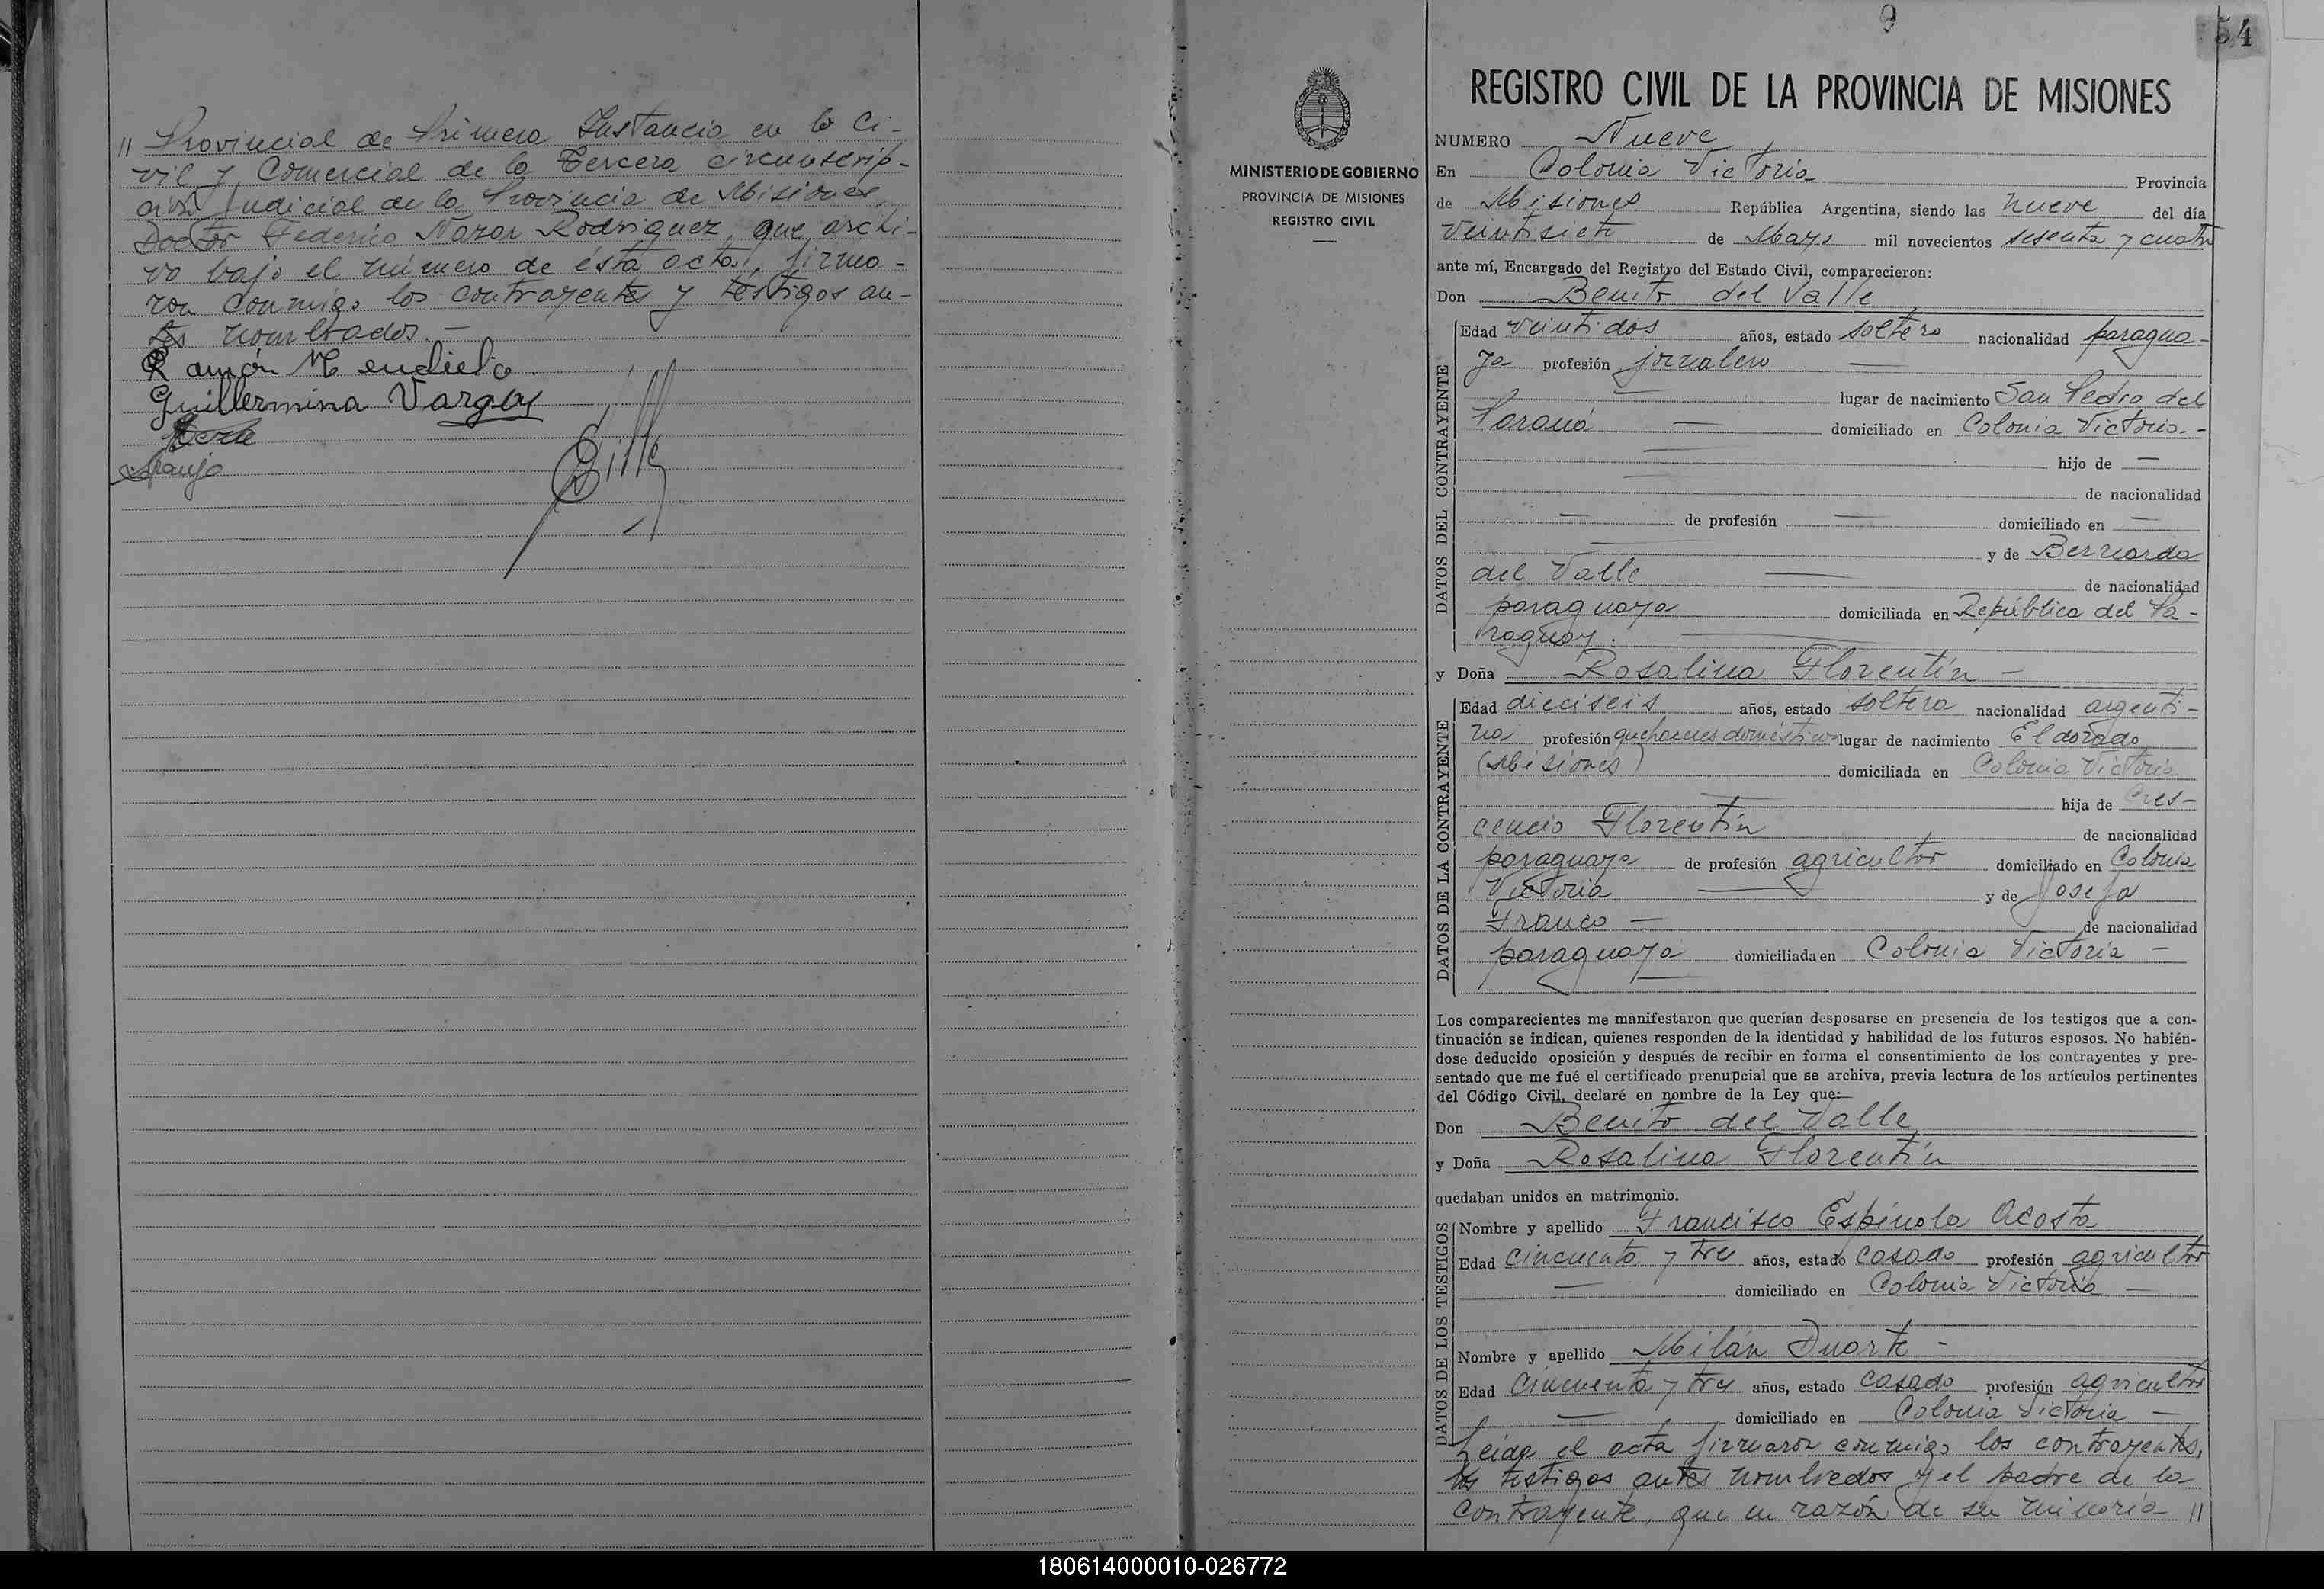 // Provincial de Primera Instancia en lo Ci-
vil y Comercial de la Tercera circunscrip-
ción Judicial de la Provincia de Misiones,
Doctor Federico Nazar Rodriguez, que archi-
vo bajo el número de ésta acta, firma-
ron conmigo los contrayentes y testigos an-
tes nombrados.—
Ramón Mendieta.
Guillermina Vargas
Araujo
MINISTERIO DE GOBIERNO
PROVINCIA DE MISIONES
REGISTRO CIVIL
9
54
REGISTRO CIVIL DE LA PROVINCIA DE MISIONES
NUMERO Nueve
En Colonia Victoria Provincia
de Misiones República Argentina, siendo las nueve del día
veintisiete de Mayo mil novecientos sesenta y cuatro
ante mí, Encargado del Registro del Estado Civil, comparecieron:
Don Benito del Valle
DATOS DEL CONTRAYENTE
Edad veintidos años, estado soltero nacionalidad paragua-
ya profesión jornalero —
lugar de nacimiento San Pedro del
Paraná — domiciliado en Colonia Victoria.-
— hijo de —
de nacionalidad
— de profesión — domiciliado en —
y de Bernarda
del Valle — de nacionalidad
paraguaya domiciliada en República del Pa-
raguay. —
y Doña Rosalina Florentín —
DATOS DE LA CONTRAYENTE
Edad dieciseis años, estado soltera nacionalidad argenti-
na profesión quehaceres domésticos lugar de nacimiento Eldorado
(Misiones) domiciliada en Colonia Victoria
— hija de Cres-
cencio Florentín de nacionalidad
paraguaya de profesión agricultor domiciliado en Colonia
Victoria — y de Josefa
Franco — de nacionalidad
paraguaya domiciliada en Colonia Victoria —
Los comparecientes me manifestaron que querían desposarse en presencia de los testigos que a con-
tinuación se indican, quienes responden de la identidad y habilidad de los futuros esposos. No habién-
dose deducido oposición y después de recibir en forma el consentimiento de los contrayentes y pre-
sentado que me fué el certificado prenupcial que se archiva, previa lectura de los artículos pertinentes
del Código Civil, declaré en nombre de la Ley que:
Don Benito del Valle
y Doña Rosalina Florentín
quedaban unidos en matrimonio.
DATOS DE LOS TESTIGOS
Nombre y apellido Francisco Espínola Acosta
Edad cincuenta y tres años, estado casado profesión agricultor
— domiciliado en Colonia Victoria —
Nombre y apellido Milán Duarte -
Edad cincuenta y tres años, estado casado profesión agricultor
— domiciliado en Colonia Victoria —
Leída el acta firmaron conmigo los contrayentes,
los testigos antes nombrados y el padre de la
contrayente, que en razón de su minoría //
180614000010-026772